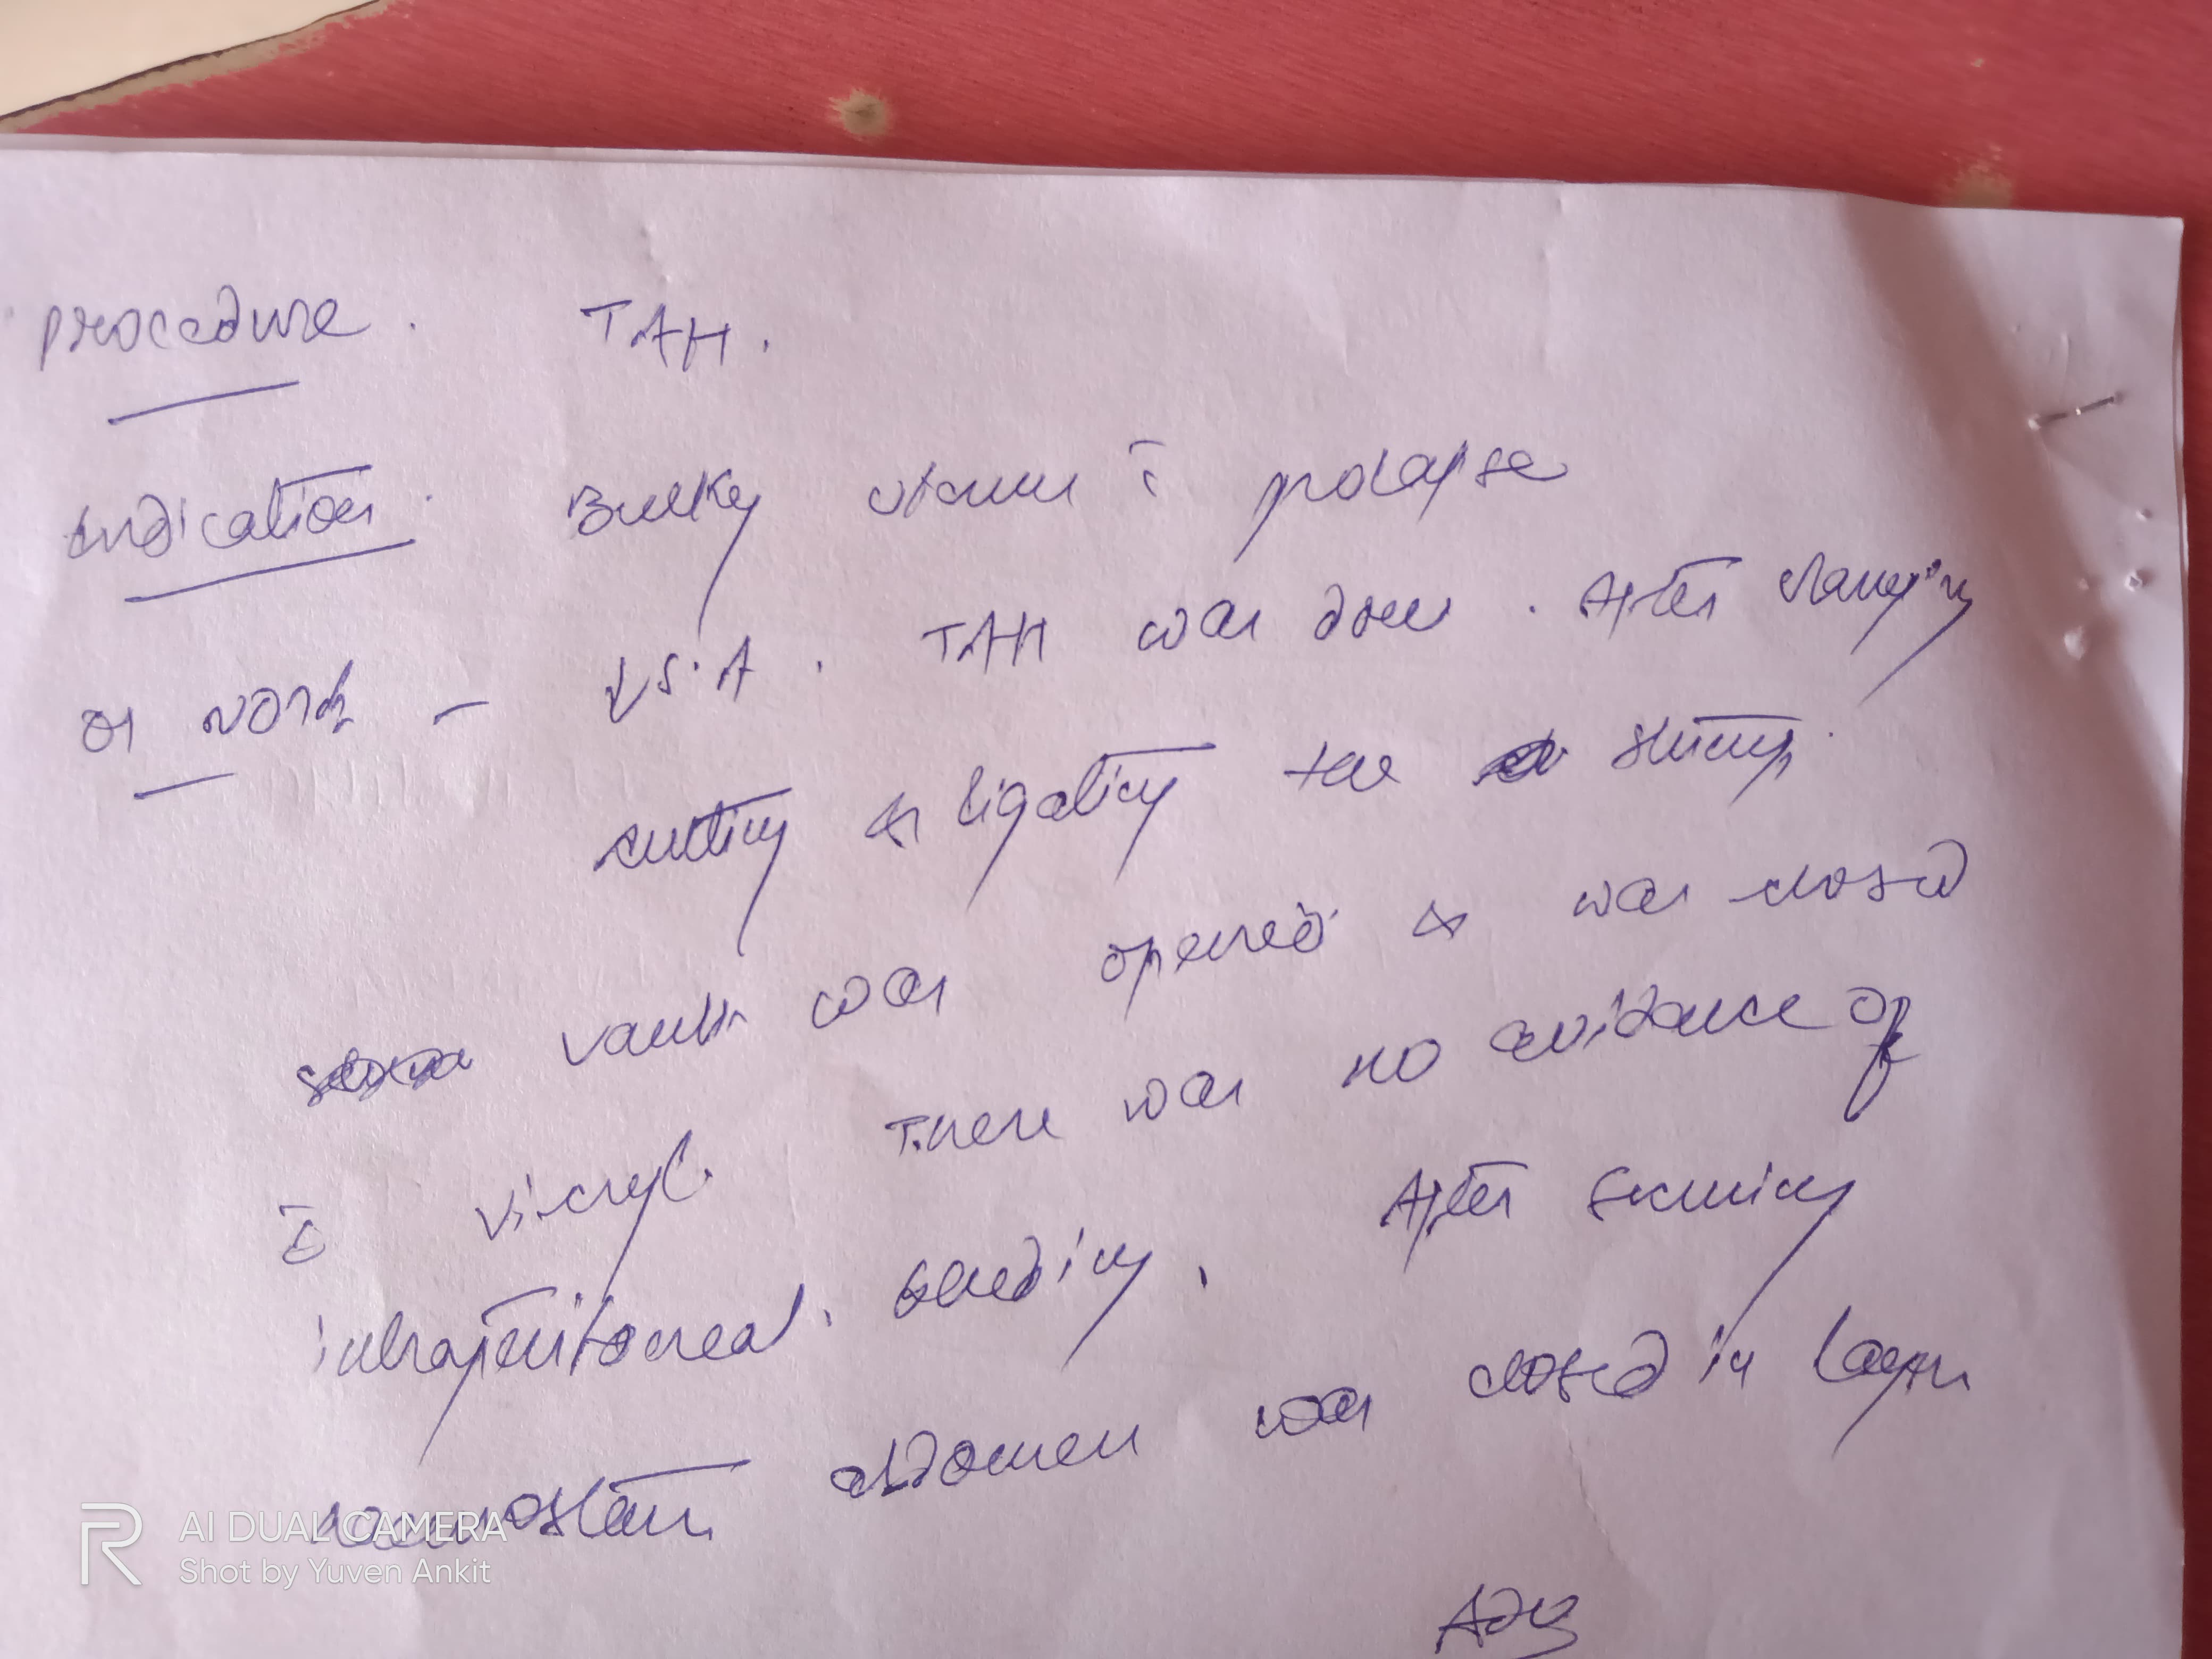 procedure. TAH.
Indication. Bulky uterus c̄ prolapse
OT work - ↓ S.A. TAH was done. After clamping
cutting & ligating the stump.
vault was opened & was closed
c̄ vicryl. There was no evidence of
intraperitoneal. bleeding. After securing
haemostasis abdomen was closed in layers
Adv
AI DUAL CAMERA
Shot by Yuven Ankit